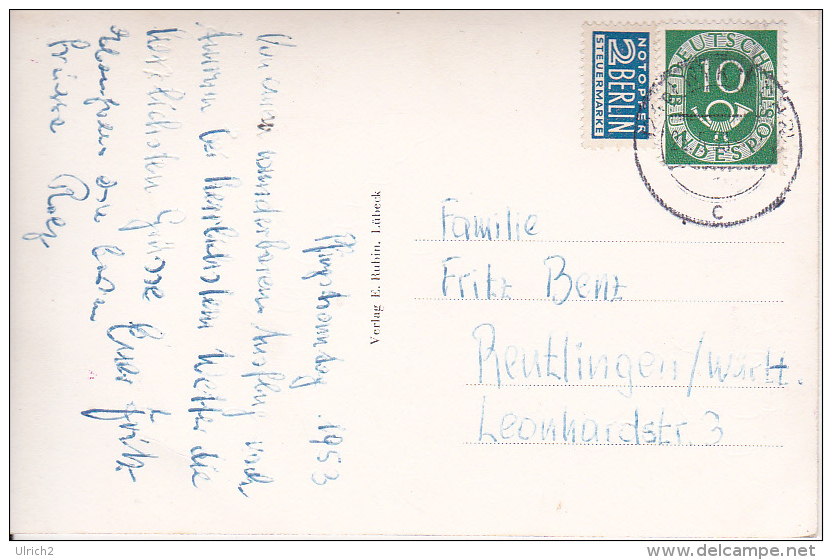 Pfingstsonntag. 1953
Von einem wunderbaren Ausflug nach
bei herrlichstem Wetter die
herzlichsten Grüsse Euer Fritz
Ebenfalls die besten
Grüsse
Verlag E. Rubin, Lübeck
NOTOPFER
2 BERLIN
STEUERMARKE
DEUTSCHE
10
BUNDESPOST
c
Familie
Fritz Benz
Reutlingen/Württ.
Leonhardstr. 3
Ulrich2
www.delcampe.net